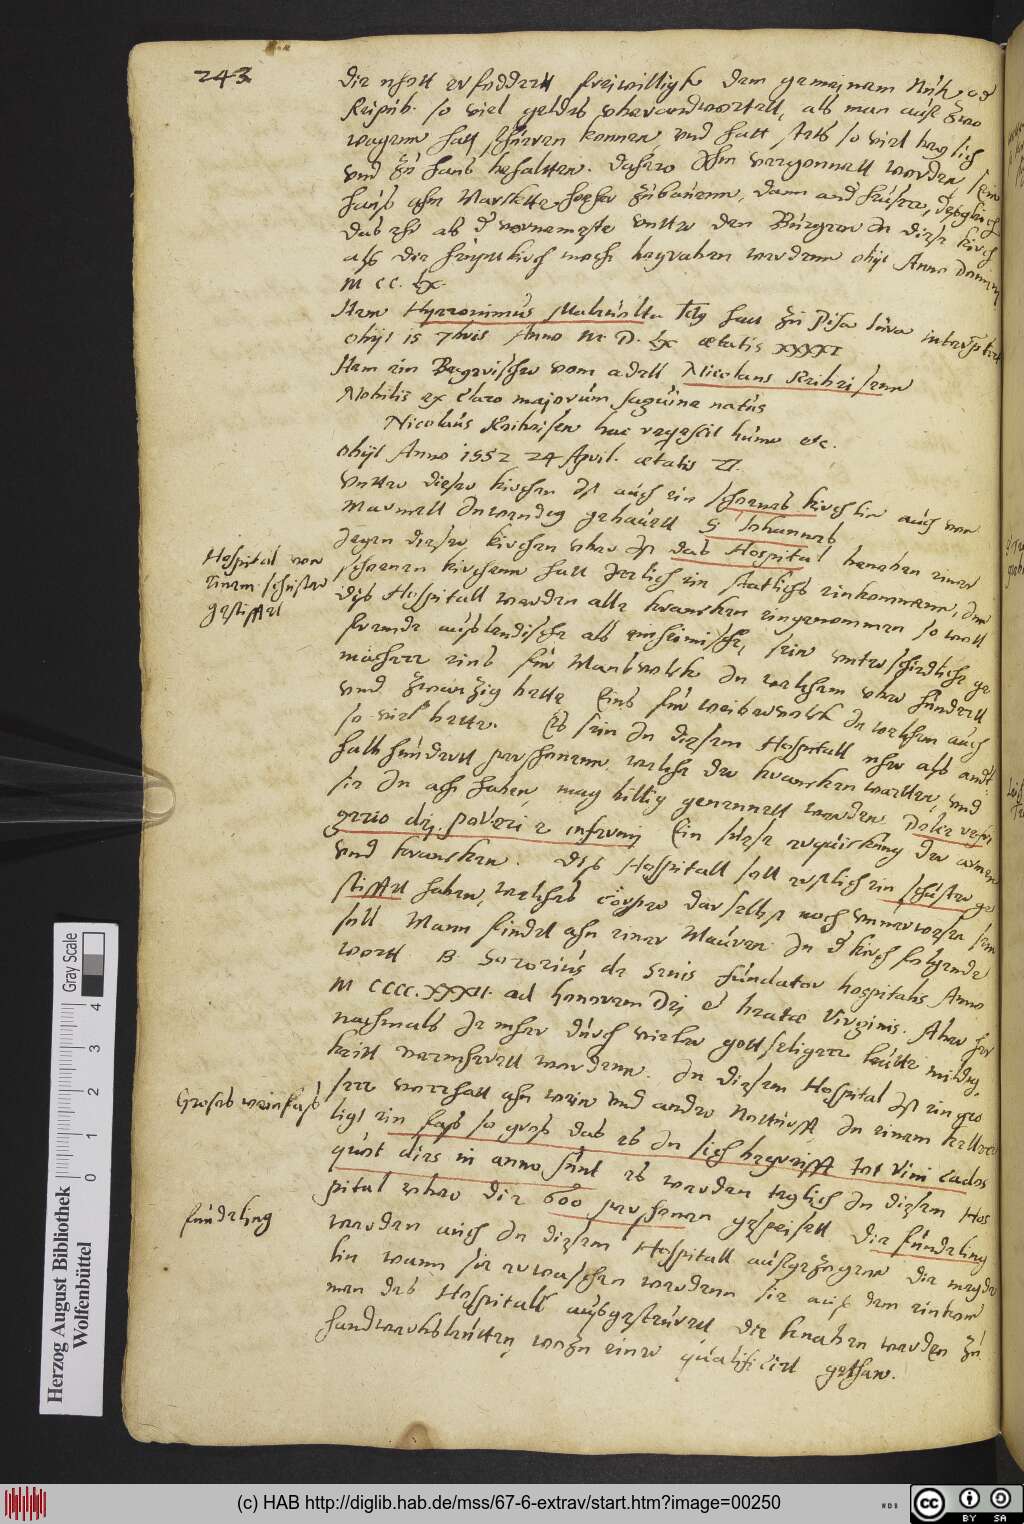 243
die noth erfoddertt freiwilligk dem gemeinem Nutz od
Reipub. so viel geldes uberandwortett, als man auf zwo
wagenn hatt fhüeren konnen, und hatt stets so viel bey sich
und zu haus behaltten. dahero Ihm vergonnett worden, sein
haus ahm Marckette hoher zubauenn, dann andʼ heuser, desgleich
das ehr als dʼ vornemeste untter den Bürgern In dieser kirch
als die heuptkirch noch begraben wordenn obijt Anno Domini
M CC. LX.
Item Hyeronimus zu Pisa iura
obijt 15 7bris Anno M. D. LX ætatis XXXXI
Item ein Beyerischer vom adell Nicolaus Reiheisenn
Nobilis ex claro maiorum sanguine natus
Nicolaus Reiheisen hac reqescit humo etc.
obijt Anno 1552 24 April. ætatis 21.
Untter dieser kirchen Ist auch ein schoenes kirchlin auch von
Marmell Inwendig gehauen S Iohannes
Iegen dieser kirchen uber Ist das Hospital beneben einer
schoenen kirchenn hatt Ierlich ein stattlichs einkommenn, Inn
dis Hospitall werden alle krancken eingenommen so woll
frembde auslendische als einheimische, sein unterschiedliche ge
mächer eins fur Mansvolck In welchem uber hundertt
und zwanzig bette Eins fur weibervolck In welchem auch
so viel bette. Es sein In diesem Hospitall uber als andt
halb hundertt personenn, welche der krancken wartten, und
sie In ach haben, mag billig genennett worden Dolce refri
gerio di poveri e infermi Ein süese erquickung der armen
und krancken. Dis Hospitall soll erstlich ein schuster ge
stifftt haben, welches cörper daselbst noch unverwesen sein
soll Mann findet ahn einer Mauren In dʼ kirch folgende
wortt. B. Sororius de Senis fundator hospitalis Anno
M CCCC.XXXII. ad honorem Dei & beatæ Virginis. Aber her
nachmals Ie mher durch vieler gottseligen leutte mildig
keitt vermherett wordenn. In diesem Hospital Ist ein gro
ser vorrhatt ahn wein und ander Notturfft, In einem keller
ligt ein fass so gros das es In sich begreifft tot vini cados
quot dies in anno sunt es werden teglich In diesem Hos
pital uber die 600 personen gespeisett. Die fundeling
werden auch In diesem Hospitall auffgezogenn die megde
lin wann sie erwachsen werdenn sie aus dem einkom
men des Hospitalls ausgesteurett, die knaben werden zu
handwercksleutten, wozu einer qualificirt gethan.
Hospital von
einem schuster
gestifftet
Groses weinfass
fundeling
Herzog August Bibliothek
Wolfenbüttel
Gray Scale
0 1 2 3 4
(c) HAB http://diglib.hab.de/mss/67-6-extrav/start.htm?image=00250
WDB
cc BY SA